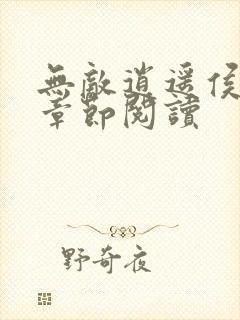 無敵逍遥侯
章節閱讀
野奇夜